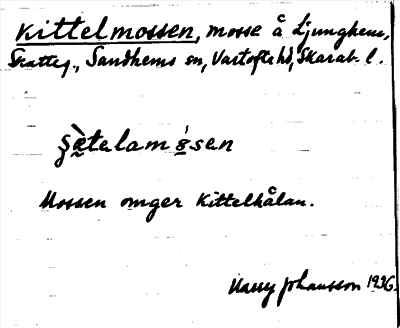 Kittelmossen, mosse å Ljunghem,
Skatteg., Sandhems sn, Vartofta hd, Skarab. l.
ʂæ̀telamósen
Mossen omger Kittelhålan.
Harry Johansson 1936.